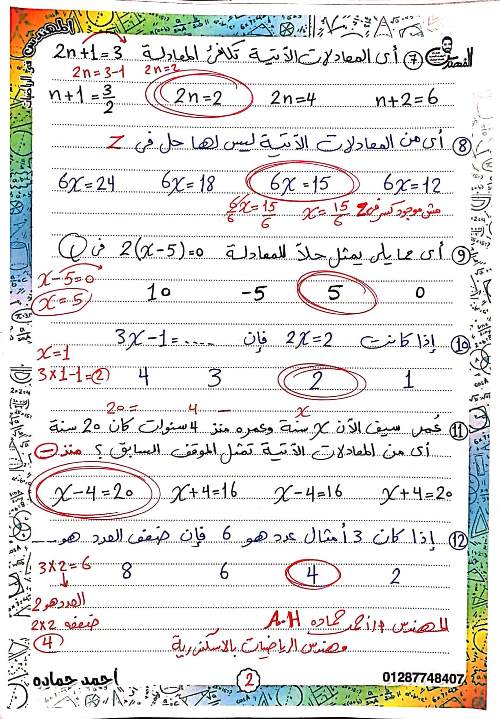 المهندس في الرياضيات
المهندس
⑦ أى المعادلات الآتية تكافئ المعادلة 2n+1=3
2n=3-1 2n=2
n+1=3/2 2n=2 2n=4 n+2=6
⑧ أى من المعادلات الآتية ليس لها حل فى Z
6x=24 6x=18 6x=15 6x=12
6x/6=15/6 x=15/6 مش موجود كسر فى Z
⑨ أى مما يلى يمثل حلاً للمعادلة 2(x-5)=0 فى Q
x-5=0
x=5
10 -5 5 0
⑩ إذا كانت 2x=2 فإن 3x-1=.....
x=1
3×1-1=2
4 3 2 1
20= 4 - x
⑪ عُمر سيف الآن x سنة وعمره منذ 4 سنوات كان 20 سنة
أى من المعادلات الآتية تمثل الموقف السابق ؟ منذ -
x-4=20 x+4=16 x-4=16 x+4=20
⑫ إذا كان 3 أمثال عدد هو 6 فإن ضعف العدد هو...
3×2=6
8 6 4 2
العدد هو 2
ضعفه 2×2
4
المهندس أ/أحمد حماده A.H
مهندس الرياضيات بالاسكندرية
احمد حماده
2
01287748407